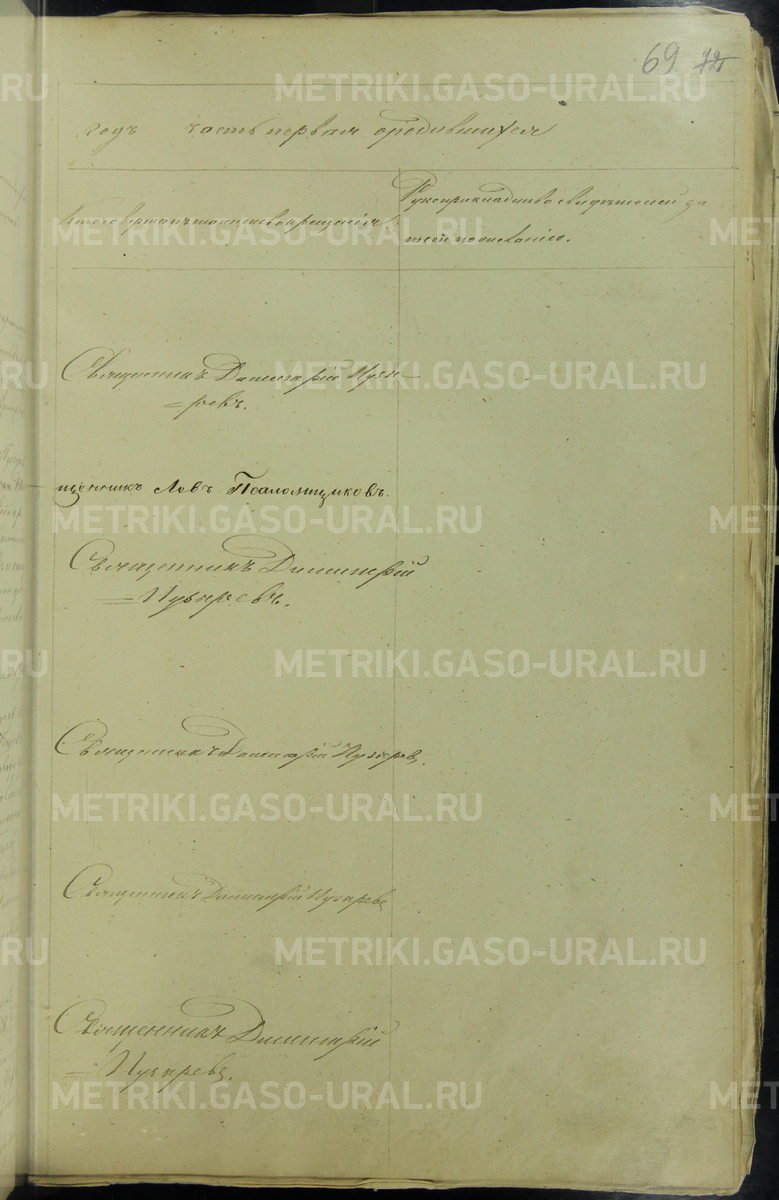 69 72
годъ часть первая о родившихся
Кто совершалъ таинство крещенія
Рукоприкладство свидѣтелей за-
писей по желанію.
Священникъ Димитрій Пузы-
=ревъ.
щенникъ Левъ Псаломщиковъ.
Священникъ Димитрій
=Пузыревъ.
Священникъ Димитрій Пузыревъ.
Священникъ Димитрій Пузыревъ
Священникъ Димитрій
=Пузыревъ.
METRIKI.GASO-URAL.RU